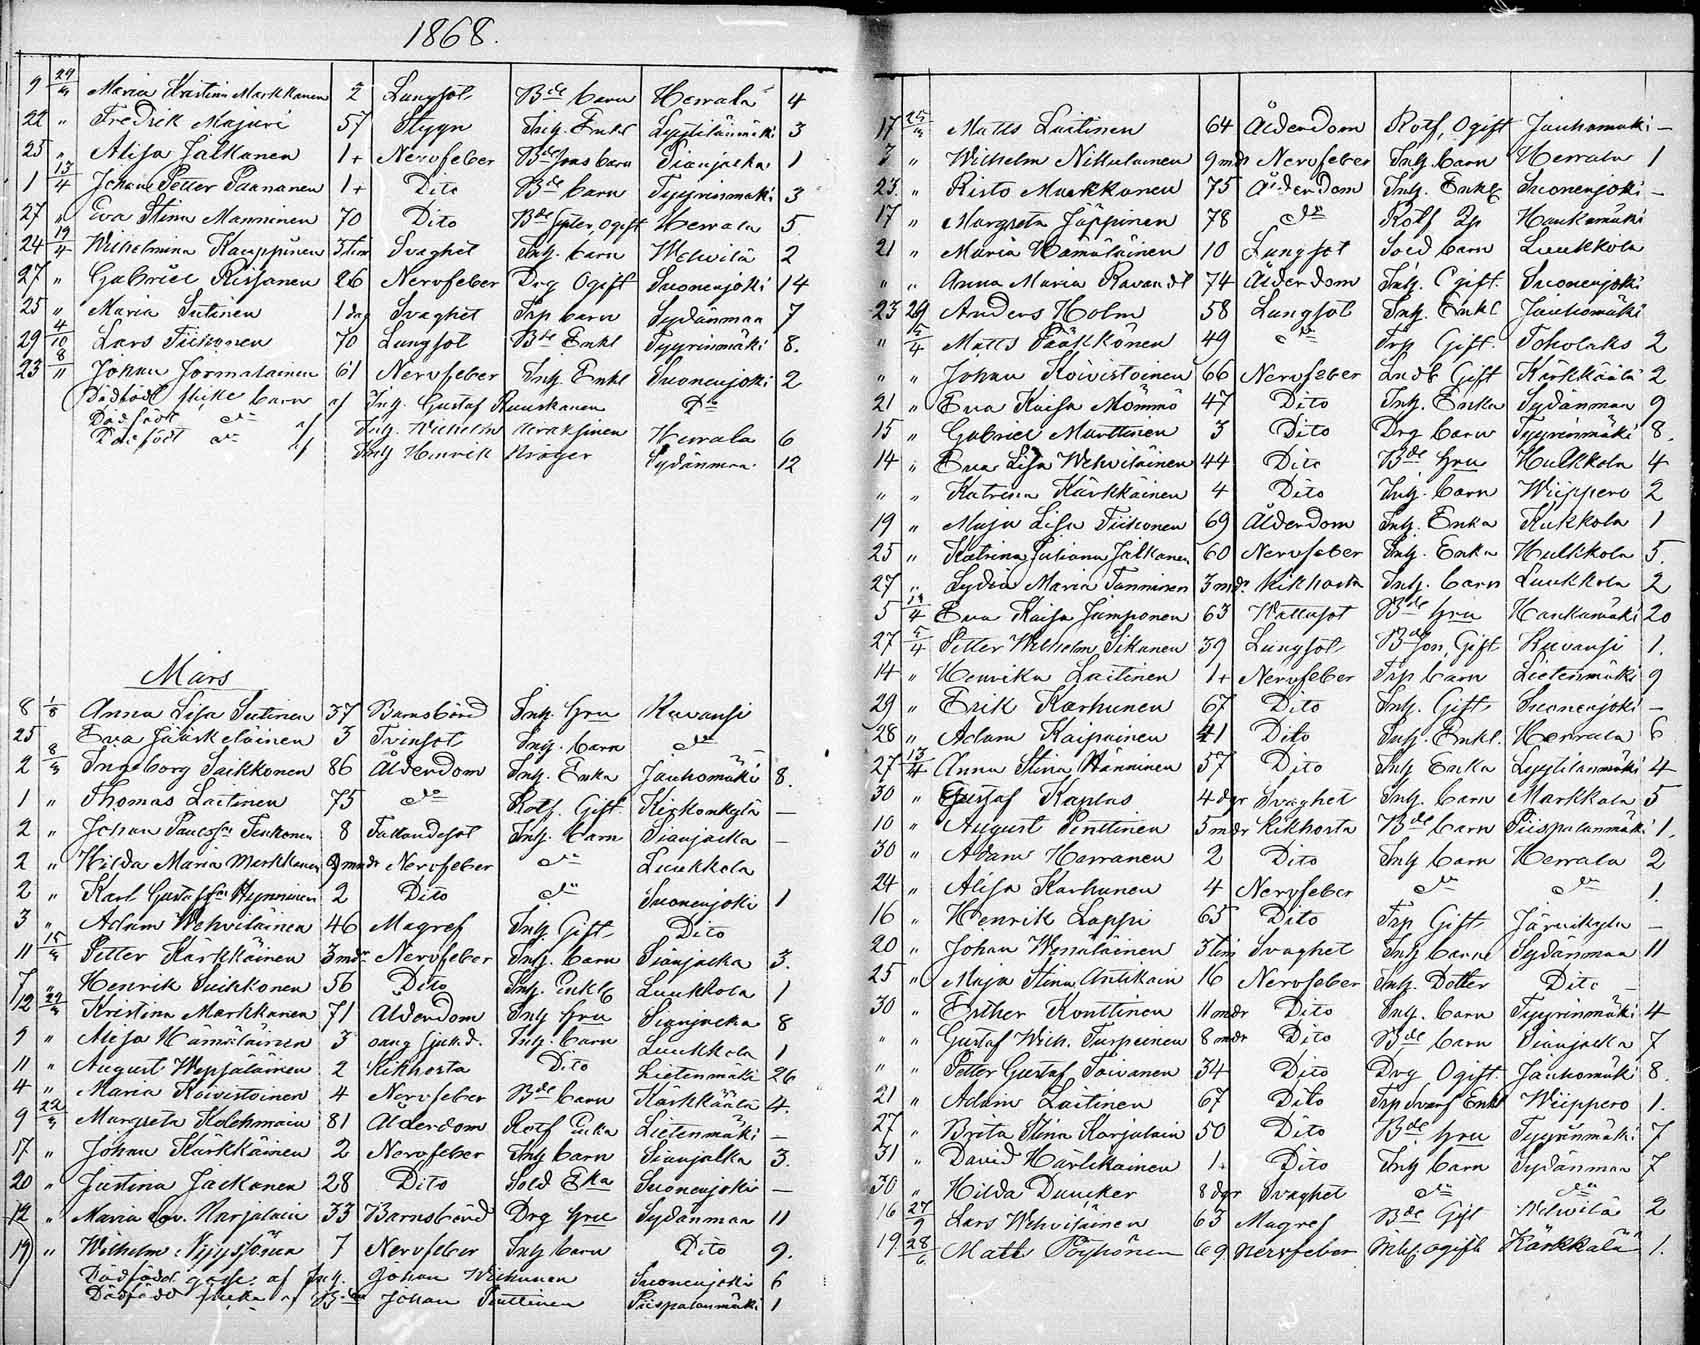 1868.
9 29/3 Maria Kristina Markkanen 2 Lungsot Bde barn Herrala 4
22 " Fredrik Majuri 57 Stygn Inh. Enkl Lyytilänmäki 3
25 " Alisa Jalkanen 1+ Nervfeber Bdesons barn Sianjalka 1
1 13/4 Johan Petter Paananen 1+ Dito Bde barn Tyyrinmäki 3
27 " Eva Stina Manninen 70 Dito Bde Syster, Ogift Herrala 5.
24 19/4 Wilhelmina Kauppinen 3 tim Svaghet Inh. barn Wehvilä 2
27 " Gabriel Rissanen 26 Nervfeber Drg Ogift Suonenjoki 14
25 " Maria Sutinen 1 dag Svaghet Trp barn Sydänmaa 7
29 4/10 Lars Tiihonen 70 Lungsot Bde Enkl Tyyrinmäki 8.
23 8/11 Johan Jormalainen 61 Nervfeber Inh. Enkl Suonenjoki 2
Dödfödt flicke barn af Inh. Gustaf Ruuskanen Do
Dödfödt do af Inh. Wilhelm Herrala 6
Dödfödt do af Inh Henrik Kröger Sydänmaa 12
Mars
8 1/8 Anna Lisa Sutinen 37 Barnsbörd Inh. hru Kuvansi
25 Eva Jääskeläinen 3 Tvinsot Inh. barn do
2 8/3 Ingeborg Saikkonen 86 Ålderdom Inh. Enka Jauhomäki 8.
1 " Thomas Laitinen 75 do Rotf. Gift Kirkonkylä —
2 " Johan Paulsson Tenhonen 8 Fallandesot Inh. barn Sianjalka —
2 " Hilda Maria Markkanen 9 mndr Nervfeber do Luukkola
2 " Karl Gustafsson Hynninen 2 Dito do Suonenjoki 1
3 " Adam Wehviläinen 46 Magref Inh. Gift Dito
11 15/3 Petter Kärkkäinen 3 mdr Nervfeber Inh. barn Sianjalka 3.
7 " Henrik Suikkonen 56 Dito Inh. Enkl Luukkola 1
12 22/3 Kristina Markkanen 71 Ålderdom Inh hru Sianjalka 8
9 " Alisa Hämäläinen 3 Inh. barn Luukkola 1
11 " August Wepsäläinen 2 Kikhosta Dito Lietenmäki 26
4 " Maria Koivistoinen 4 Nervfeber Bde barn Kärkkäälä 4.
9 22/3 Margreta Kolehmain 81 Ålderdom Rotf Enka Lietenmäki —
17 " Johan Kärkkäinen 2 Nervfeber Inh barn Sianjalka 3.
20 " Justina Jalkanen 28 Dito Sold Eka Suonenjoki —
12 " Maria Lov. Karjalain 33 Barnsbörd Drg hru Sydänmaa 11
19 " Wilhelm Nyyssönen 7 Nervfeber Inh barn Dito 9.
Dödfödd gosse af Inh. Johan Wichunen Suonenjoki 6
Dödfödd flicka af Johan Penttinen Piispalanmäki 1
17 25/3 Matts Laitinen 64 Ålderdom Rotf, Ogift Jauhomäki —
3 " Wilhelm Nikulainen 9 mdr Nervfeber Inh barn Herrala 1
23. " Risto Markkanen 75 Ålderdom Inh. Enkl Suonenjoki —
17 " Margreta Jäppinen 78 do Rotf Hankamäki
21 " Maria Hämäläinen 10 Lungsot Sold barn Luukkola
" " Anna Maria Ravandel 74 Ålderdom Inh. Ogift. Suonenjoki
23 29 Anders Holm 58 Lungsot Inh. Enkl Jauhomäki
" 5/4 Matts Pääkkönen 49 do Trp Gift Toholaks 2
" " Johan Koivistoinen 66 Nervfeber Landb Gift Kärkkäälä 2
21 " Eva Kaisa Mömmö 47 Dito Inh. Enka Sydänmaa 9
15 " Gabriel Marttinen 3 Dito Drg barn Tyyrinmäki 8.
14 " Eva Lisa Wehviläinen 44 Dito Bde hru Hulkkola 4
" " Katrina Kärkkäinen 4 Dito Inh. barn Wiippero 2
19 " Maja Lisa Tiihonen 69 Ålderdom Inh. Enka Kukkola 1
25 " Katrina Juliana Jalkanen 60 Nervfeber Inh. Enka Hulkkola 5.
27 " Lydia Maria Tanninen 3 mdr. Kikhosta Inh. barn Luukkola 2
5 19/4 Eva Kaisa Jumponen 63 Wattusot Bde hru Hankamäki 20
27 5/4 Petter Wilhelm Sikanen 39 Lungsot Bdeson, Gift Kuvansi 1.
14 " Henrika Laitinen 1+ Nervfeber Trp barn Lietenmäki 9
29 " Erik Karhunen 67 Dito Inh. Gift Suonenjoki —
28 " Adam Kaipainen 41 Dito Inh. Enkl. Herrala 6
27 13/4 Anna Stina Hänninen 57 Dito Inh Enka Lyytilänmäki 4
30 " Gustaf Kaplas 4 dgr Svaghet Inh. barn Markkala 5
10 " August Penttinen 5 mdr Kikhosta Bde barn Piispalanmäki 1.
30 " Adam Harranen 2 Dito Inh barn Herrala 2
24 " Alisa Karhunen 4 Nervfeber do do 1.
16 " Henrik Lappi 65 Dito Trp Gift Järvikylä —
20 " Johan Wenäläinen 3 tim Svaghet Inh barn Sydänmaa 11
25 " Maja Stina Antikain 16 Nervfeber Inh. Dotter Dito —
30 " Esther Konttinen 11 mdr Dito Inh. barn Tyyrinmäki 4
" " Gustaf Wilh. Turpeinen 8 mdr Dito Bde barn Sianjalka 7
" " Petter Gustaf Toivanen 34 Dito Drg Ogift Jauhomäki 8.
21 " Adam Laitinen 67 Dito Trp Svarf Enkl Wiippero 1.
27 " Breta Stina Karjalain 50 Dito Bde hru Tyyrinmäki 7
31 " David Härkkäinen 1+ Dito Inh barn Sydänmaa 7
30 " Hilda Duncker 8 dgr Svaghet do do
16 27/9 Lars Wehviläinen 63 Magref Bde Gift Wehvilä 2
19 28/6 Matt Pöyhönen 69 Nervfeber ogift Kärkkälä 1.